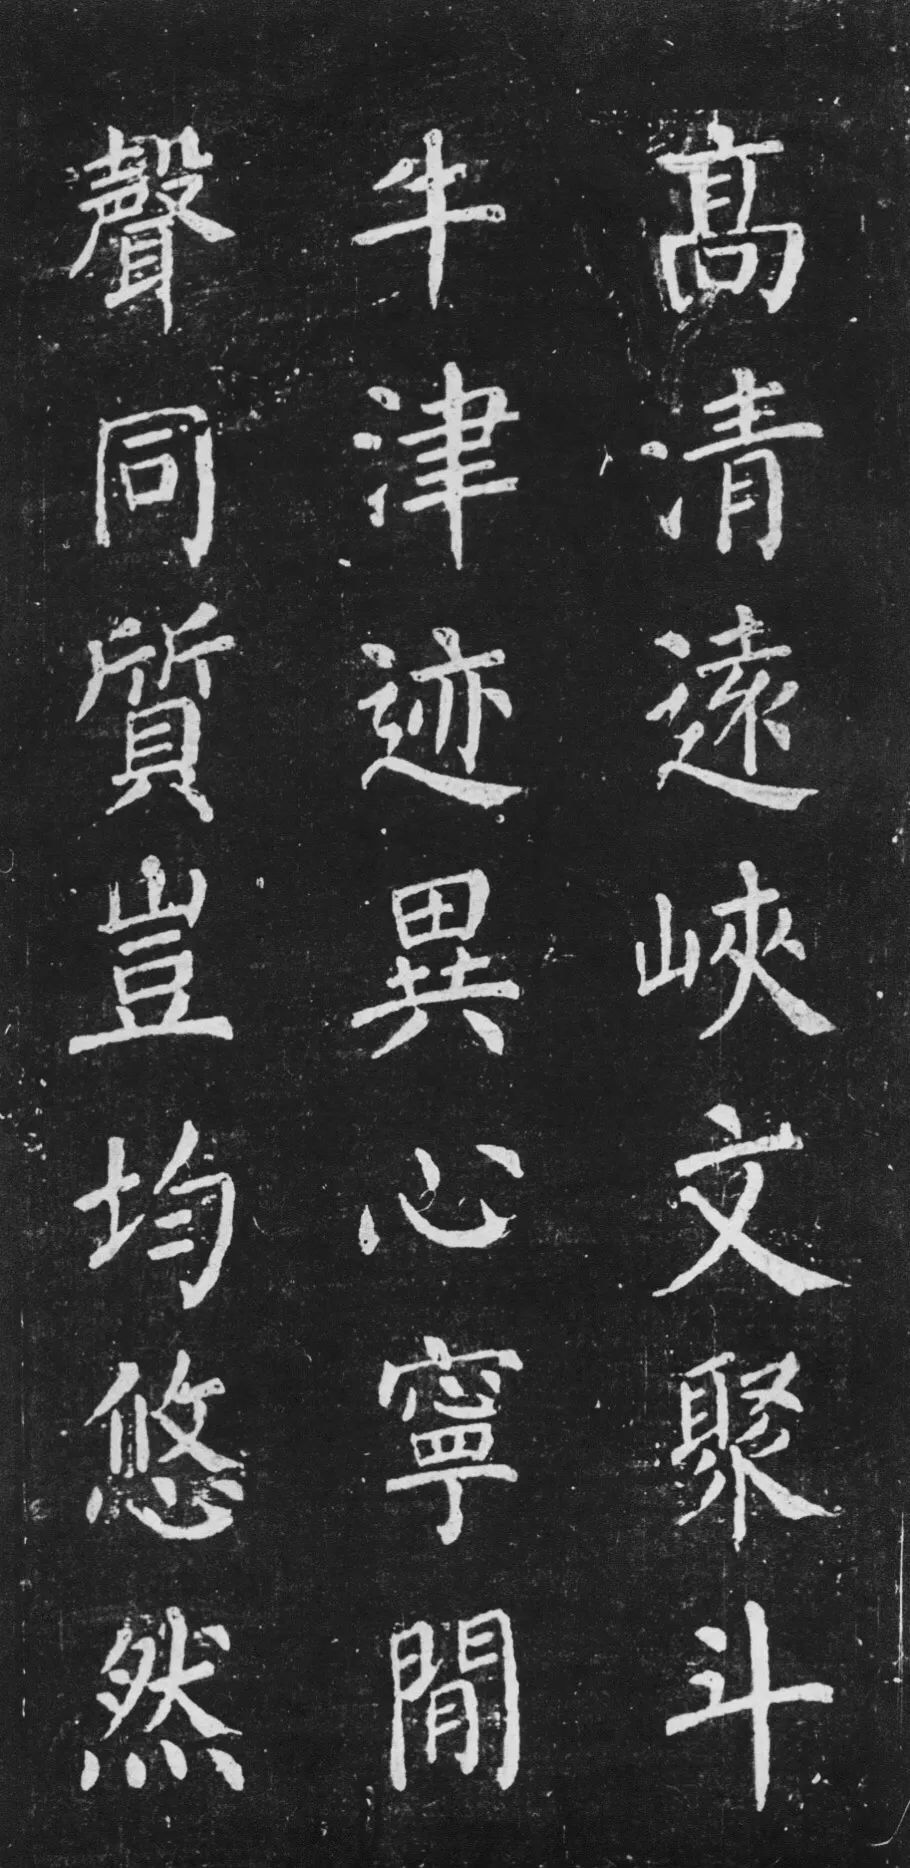 髙清遠峽文聚斗
牛津迹異心寧閒
聲同質豈均悠然